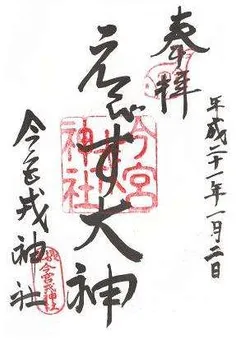 奉拝
平成二十一年一月二日
えびす大神
今宮戎神社
今宮
神社
今宮戎神社